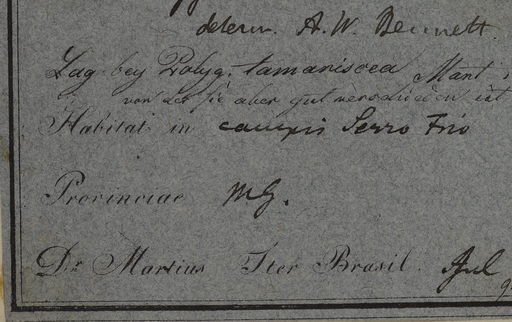 determ. A. W. Bennett.
Lag bey Polyg. tamariscea Mart.
von der sie aber gut verschieden ist
Habitat in campis Serro Frio
Provinciae MG.
Dr. Martius Iter Brasil. Jul